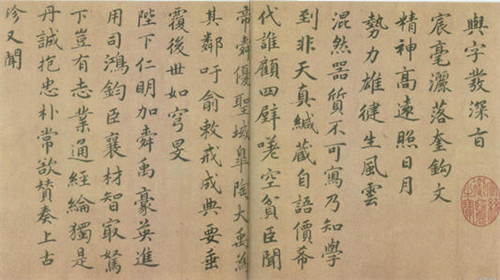 與字發深旨
宸毫灑落奎鈎文
精神高遠照日月
勢力雄健生風雲
混然器質不可寫乃知學
到非天真緘藏自語價希
代誰顧四壁嗟空貧臣聞
帝舜優聖域皐陶大禹為
其鄰吁俞敕戒成典要垂
覆後世如穹旻
陛下仁明加舜禹豪英進
用司鴻鈞臣襄材智最駑
下豈有志業通經綸獨是
丹誠抱忠朴常欲贊奏上古
珍又聞